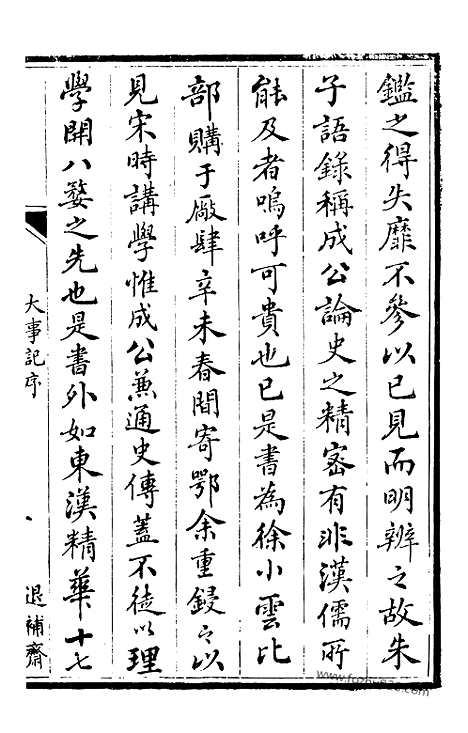 鑑之得失靡不參以已見而明辨之故朱
子語錄稱成公論史之精密有非漢儒所
能及者嗚呼可貴也已是書為徐小雲比
部購于厰肆辛未春間寄鄂余重鋟之以
見宋時講學惟成公兼通史傳蓋不徒以理
學開八婺之先也是書外如東漢精華十七
大事記序
退補齋